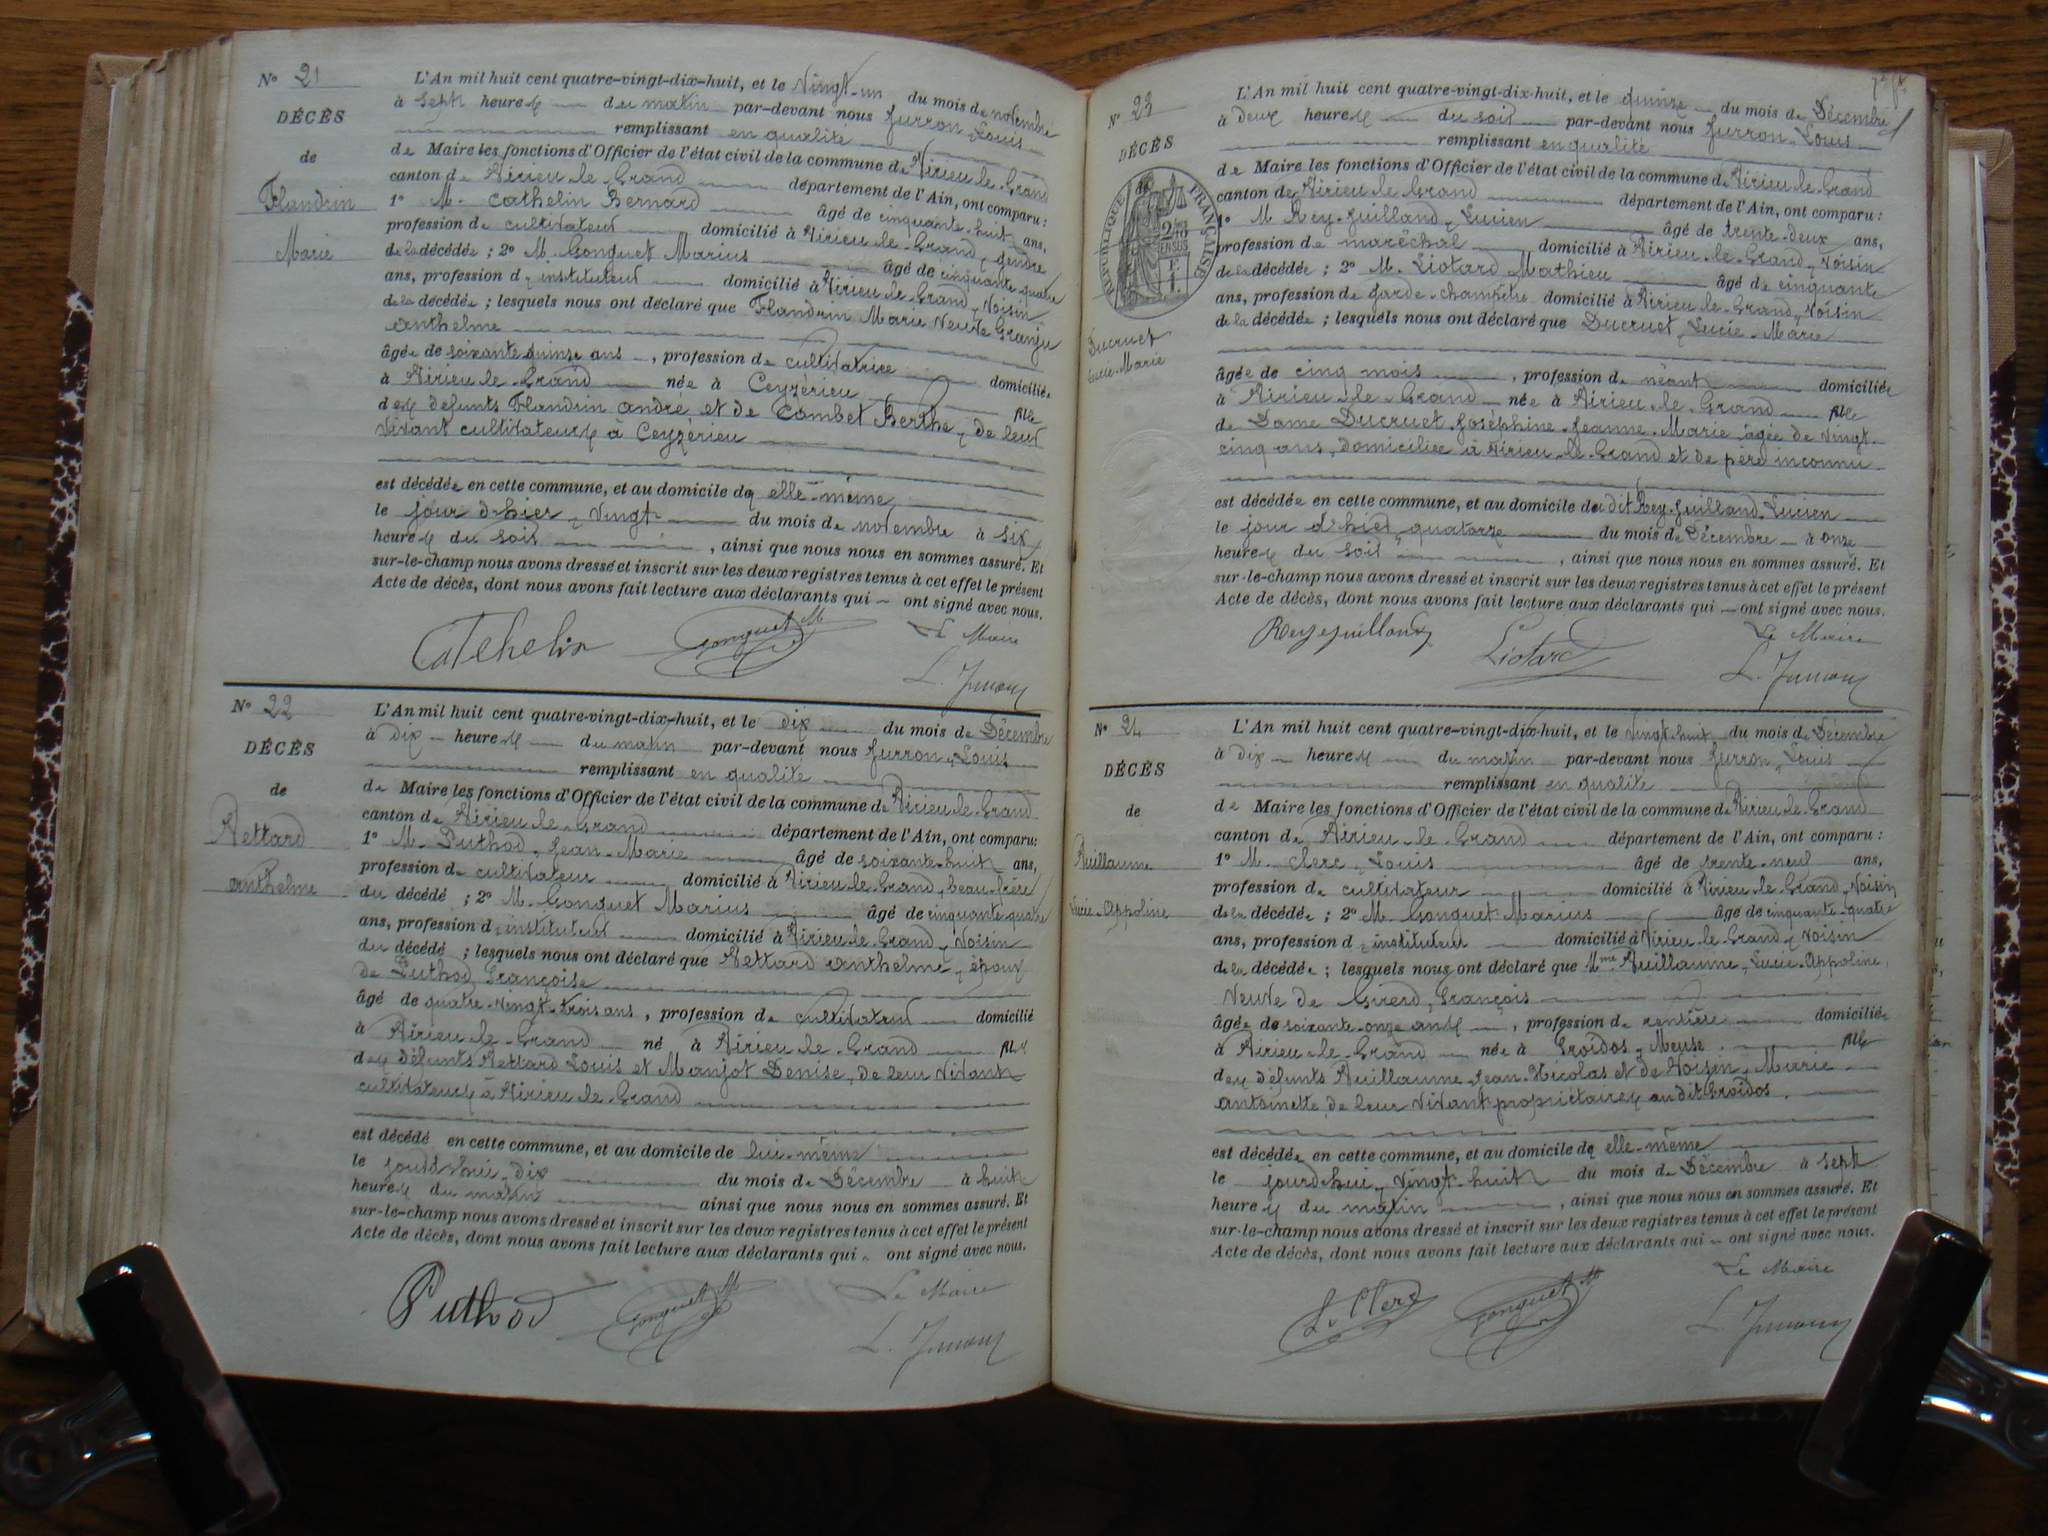 Nº 21
DÉCÈS
de
Flandrin
Marie
L'An mil huit cent quatre-vingt-dix-huit, et le Vingt-un du mois de novembre
à sept heures du matin par-devant nous Jurron Louis
remplissant en qualité
de Maire les fonctions d'Officier de l'état civil de la commune de Virieu-le-Grand
canton de Virieu-le-Grand département de l'Ain, ont comparu :
1º M. Cathelin Bernard âgé de cinquante-huit ans,
profession de cultivateur domicilié à Virieu-le-Grand, gendre
de la décédée ; 2º M. Gonguet Marius âgé de cinquante-quatre
ans, profession d'instituteur domicilié à Virieu-le-Grand, Voisin
de la décédée ; lesquels nous ont déclaré que Flandrin Marie Veuve Granju
Anthelme
âgée de soixante quinze ans, profession de cultivatrice domiciliée
à Virieu-le-Grand née à Ceyzérieu fille
des défunts Flandrin André et de Combet Berthe, de leur
vivant cultivateurs à Ceyzérieu
est décédée en cette commune, et au domicile de elle-même
le jour d'hier, vingt du mois de novembre à six
heures du soir, ainsi que nous nous en sommes assuré. Et
sur-le-champ nous avons dressé et inscrit sur les deux registres tenus à cet effet le présent
Acte de décès, dont nous avons fait lecture aux déclarants qui ont signé avec nous.
Cathelin Gonguet M Le Maire
L. Jurron
Nº 22
DÉCÈS
de
Vettard
Anthelme
L'An mil huit cent quatre-vingt-dix-huit, et le dix du mois de Décembre
à dix heures du matin par-devant nous Jurron, Louis
remplissant en qualité
de Maire les fonctions d'Officier de l'état civil de la commune de Virieu-le-Grand
canton de Virieu-le-Grand département de l'Ain, ont comparu :
1º M. Puthod, Jean-Marie âgé de soixante-huit ans,
profession de cultivateur domicilié à Virieu-le-Grand, beau-frère
du décédé ; 2º M. Gonguet Marius âgé de cinquante-quatre
ans, profession d'instituteur domicilié à Virieu-le-Grand, Voisin
du décédé ; lesquels nous ont déclaré que Vettard Anthelme, époux
de Puthod Françoise
âgé de quatre-vingt-trois ans, profession de cultivateur domicilié
à Virieu-le-Grand né à Virieu-le-Grand fils
des défunts Vettard Louis et Manjot Denise, de leur vivant
cultivateurs à Virieu-le-Grand
est décédé en cette commune, et au domicile de lui-même
le jourd'hui, dix du mois de Décembre à huit
heures du matin ainsi que nous nous en sommes assuré. Et
sur-le-champ nous avons dressé et inscrit sur les deux registres tenus à cet effet le présent
Acte de décès, dont nous avons fait lecture aux déclarants qui ont signé avec nous.
Puthod Gonguet M Le Maire
L. Jurron
Nº 23
DÉCÈS
de
RÉPUBLIQUE FRANÇAISE
Ducruet
Lucie-Marie
L'An mil huit cent quatre-vingt-dix-huit, et le quinze du mois de Décembre
à deux heures du soir par-devant nous Jurron, Louis
remplissant en qualité
de Maire les fonctions d'Officier de l'état civil de la commune de Virieu-le-Grand
canton de Virieu-le-Grand département de l'Ain, ont comparu :
1º M. Rey-Juilland, Lucien âgé de trente-deux ans,
profession de maréchal domicilié à Virieu-le-Grand, Voisin
de la décédée ; 2º M. Liotard Mathieu âgé de cinquante
ans, profession de garde-champêtre domicilié à Virieu-le-Grand, Voisin
de la décédée ; lesquels nous ont déclaré que Ducruet, Lucie-Marie
âgée de cinq mois, profession de néant domiciliée
à Virieu-le-Grand née à Virieu-le-Grand fille
de Dame Ducruet Joséphine-Jeanne-Marie âgée de vingt-
cinq ans, domiciliée à Virieu-le-Grand et de père inconnu
est décédée en cette commune, et au domicile du dit Rey-Juilland, Lucien
le jour d'hier, quatorze du mois de Décembre à onze
heures du soir, ainsi que nous nous en sommes assuré. Et
sur-le-champ nous avons dressé et inscrit sur les deux registres tenus à cet effet le présent
Acte de décès, dont nous avons fait lecture aux déclarants qui ont signé avec nous.
Reyjuilland Liotard Le Maire
L. Jurron
Nº 24
DÉCÈS
de
Vuillaume
Lucie-Appoline
L'An mil huit cent quatre-vingt-dix-huit, et le Vingt-huit du mois de Décembre
à dix heures du matin par-devant nous Jurron, Louis
remplissant en qualité
de Maire les fonctions d'Officier de l'état civil de la commune de Virieu-le-Grand
canton de Virieu-le-Grand département de l'Ain, ont comparu :
1º M. Clerc, Louis âgé de trente-neuf ans,
profession de cultivateur domicilié à Virieu-le-Grand, Voisin
de la décédée ; 2º M. Gonguet Marius âgé de cinquante-quatre
ans, profession d'instituteur domicilié à Virieu-le-Grand, Voisin
de la décédée ; lesquels nous ont déclaré que Mme Vuillaume, Lucie-Appoline,
Veuve de Girerd, François
âgée de soixante-onze ans, profession de rentière domiciliée
à Virieu-le-Grand née à Froidos, Meuse fille
des défunts Vuillaume Jean-Nicolas et de Voisin, Marie
Antoinette, de leur vivant propriétaires au dit Froidos.
est décédée en cette commune, et au domicile de elle-même
le jourd'hui, vingt-huit du mois de Décembre à sept
heures du matin, ainsi que nous nous en sommes assuré. Et
sur-le-champ nous avons dressé et inscrit sur les deux registres tenus à cet effet le présent
Acte de décès, dont nous avons fait lecture aux déclarants qui ont signé avec nous.
L. Clerc Gonguet M Le Maire
L. Jurron